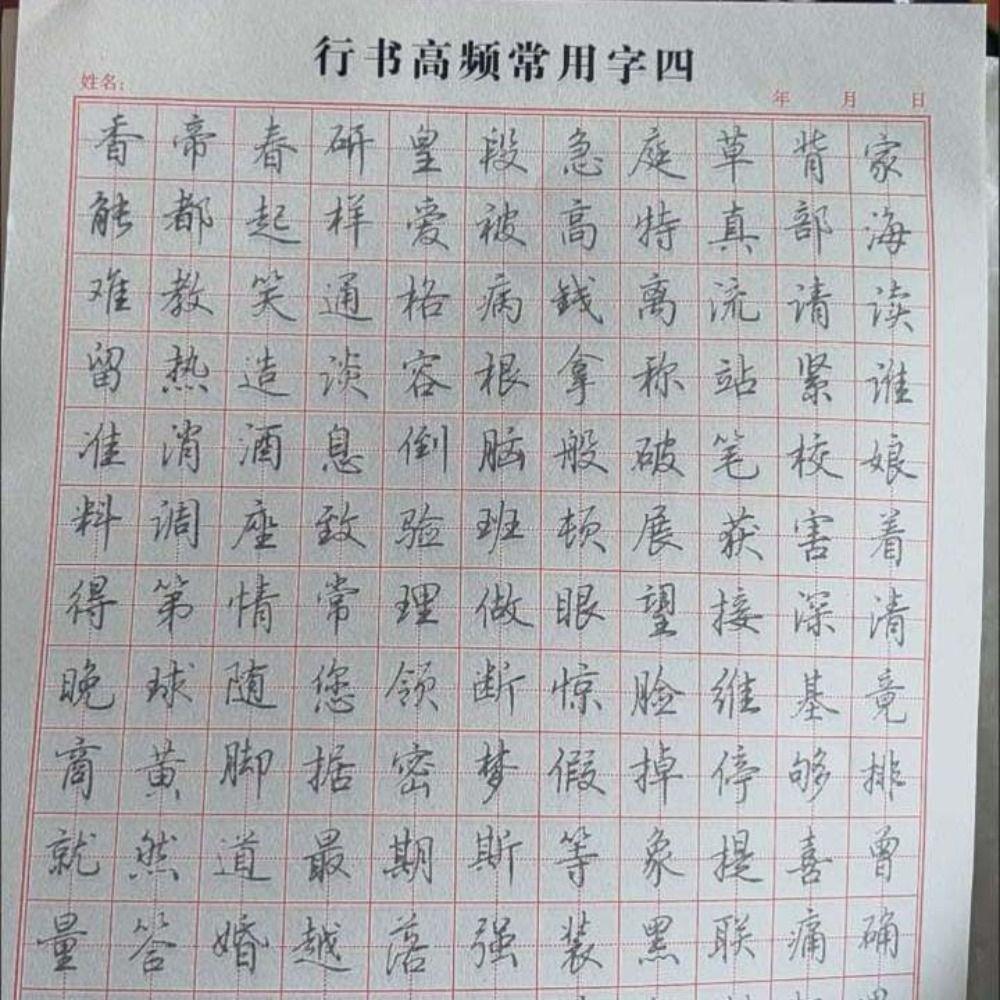 行书高频常用字四
姓名: 年 月 日
香帝春研皇段急庭草背家
能都起样爱被高特真部海
难教笑通格病钱离流请读
留热造谈容根拿称站紧谁
准消酒息倒脑般破笔校娘
料调座致验班顿展获害着
得第情常理做眼望接深清
晚球随您领断惊脸维基竟
商黄脚据密梦假掉停够排
就然道最期斯等象提喜曾
量答婚越落强装黑联痛确